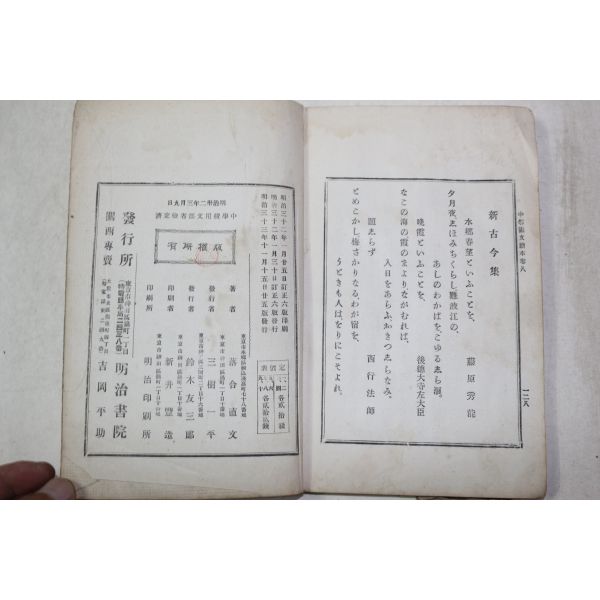 中等國文讀本卷八
一二八
新古今集
水鄕春望といふことを、
藤原秀能
夕月夜ゑほみちくらし難波江の、
あしのわかばをこゆるゑら浪。
晚霞といふことを、
後德大寺左大臣
なごの海の霞のまよりながむれば、
入日をあらふおきつゑらなみ。
題ゑらず
西行法師
とめこかし梅さかりなるわが宿を、
うときも人は、をりにこそよれ。
明治三十二年一月廿五日訂正六版印刷
明治三十二年一月三十日訂正六版發行
明治三十三年十一月十五日廿五版發行
定價表
著者
落合直文
發行者
三樹一平
發行者
鈴木友三郎
印刷者
印刷所
明治印刷所
版權所有
明治卅二年三月九日
中學校用文部省檢定濟
發行所
明治書院
關西專賣
吉岡平助